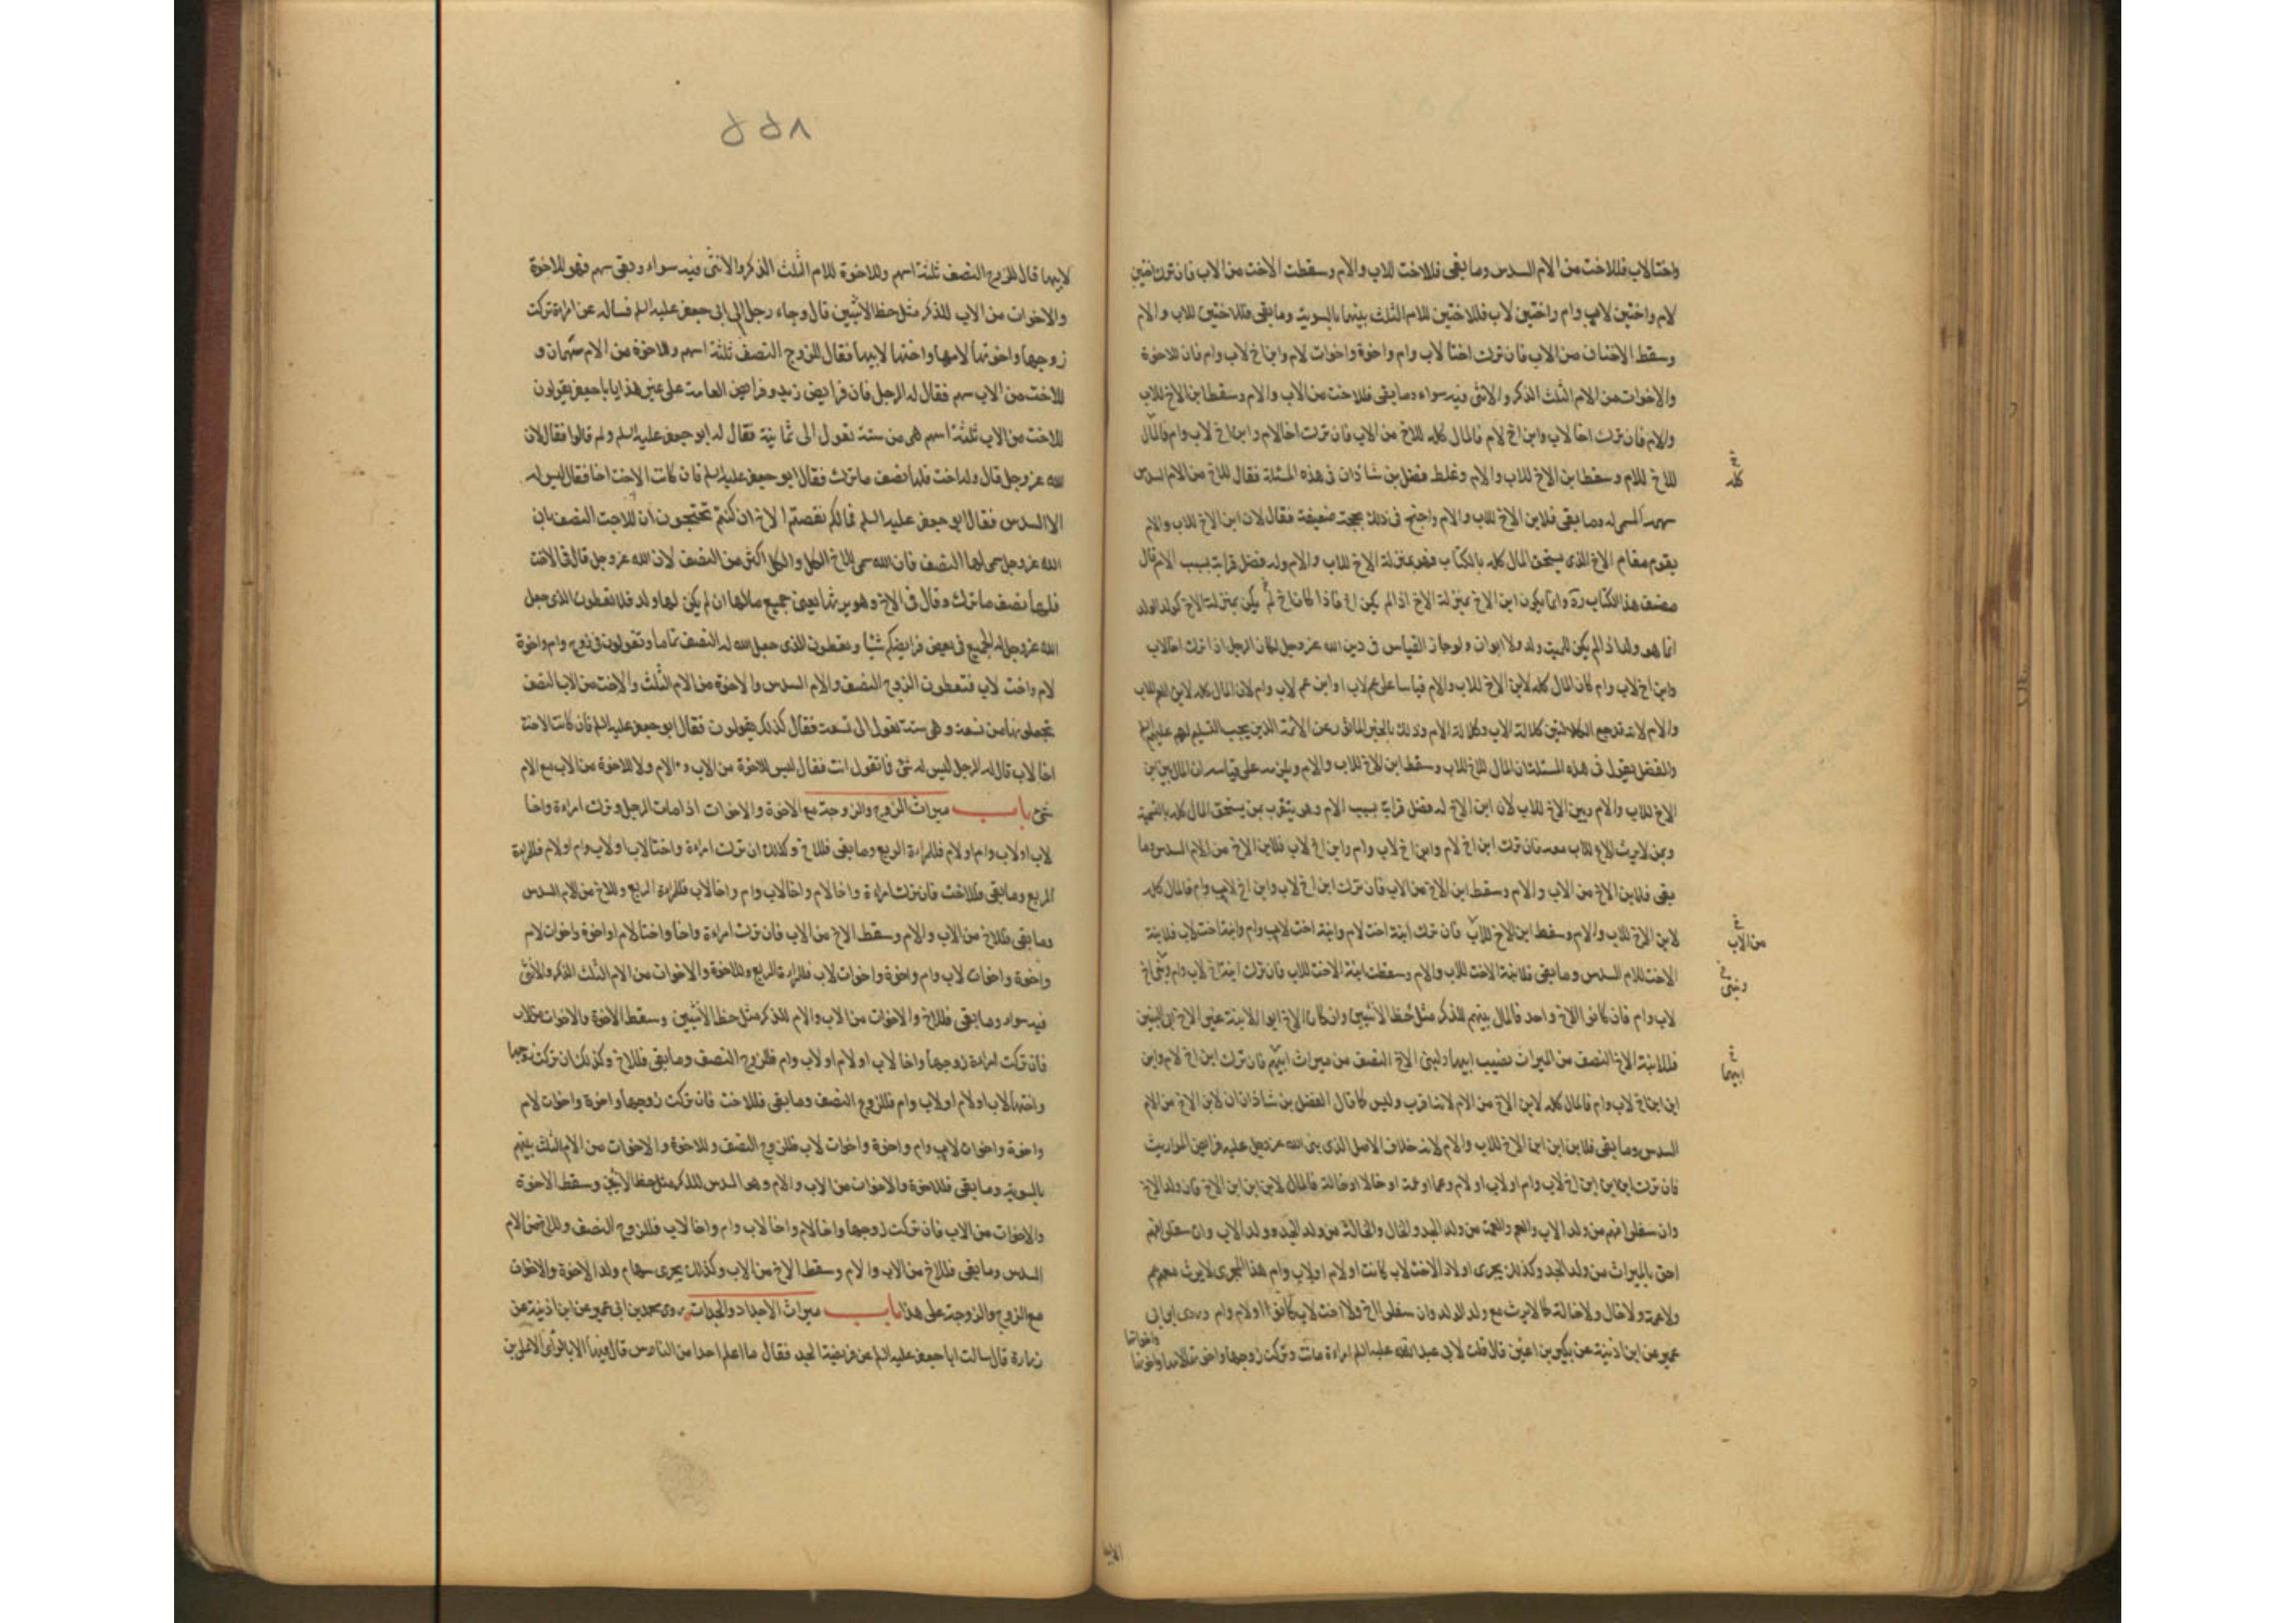 واختا لاب فللاخت من الام السدس وما بقى فللاخت للاب والام وسقطت الاخت من الاب فان ترك اختين
لام واختين لاب وام واختين لاب فللاختين للام الثلث بينهما بالسوية وما بقى فللاختين للاب والام
وسقط الاختان من الاب فان ترك اختا لاب وام واخوة واخوات لام وابن اخ لاب وام فان للاخوة
والاخوات من الام الثلث الذكر والانثى فيه سواء وما بقى فللاخت من الاب والام وسقط ابن الاخ للاب
والام فان ترك اخا لاب وابن اخ لام فالمال كله للاخ من الاب فان ترك اخا لام وابن اخ لاب وام فالمال
للاخ للام وسقط ابن الاخ للاب والام وغلط فضل بن شاذان فى هذه المسئلة فقال للاخ من الام السدس
كله
سهمه المسمى له وما بقى فلابن الاخ للاب والام واحتج فى ذلك بحجة ضعيفة فقال لان ابن الاخ للاب والام
يقوم مقام الاخ الذى يستحق المال كله بالكتاب فهو بمنزلة الاخ للاب والام وله فضل قرابة بسبب الام قال
مصنف هذا الكتاب ره وانما يكون ابن الاخ بمنزلة الاخ اذا لم يكن اخ فاذا كان اخ لم يكن بمنزلة الاخ كولد الولد
انما هو ولد اذا لم يكن للميت ولد ولا ابوان ولو جاز القياس فى دين الله عز وجل لكان الرجل اذا ترك اخا لاب
وابن اخ لاب وام كان المال كله لابن الاخ للاب والام قياسا على عم لاب وابن عم لاب وام لان المال كله لابن العم للاب
والام لانه قد جمع الكلالتين كلالة الاب وكلالة الام وذلك بالخبر الماثور عن الائمة الذين يجب التسليم لهم عليهم السلم
والفضل يقول فى هذه المسئلة ان المال للاخ للاب وسقط ابن الاخ للاب والام ويلزمه على قياسه ان المال بين ابن
الاخ للاب والام وبين الاخ للاب لان ابن الاخ له فضل قرابة بسبب الام وهو يتقرب بمن يستحق المال كله بالتسمية
وبمن لا يرث الاخ للاب معه فان ترك ابن اخ لام وابن اخ لاب وام وابن اخ لاب فلابن الاخ من الام السدس وما
بقى فلابن الاخ من الاب والام وسقط ابن الاخ من الاب فان ترك ابن اخ لاب وابن اخ لاب وام فالمال كله
لابن الاخ للاب والام وسقط ابن الاخ للاب فان ترك ابنة اخت لام وابنة اخت لاب وام وابنة اخت لاب فلابنة
من الاب
الاخت للام السدس وما بقى فلابنة الاخت للاب والام وسقطت ابنة الاخت للاب فان ترك ابنة اخ لاب وام وبنى اخ
وبنى
لاب وام فان كانوا لاخ واحد فالمال بينهم للذكر مثل حظ الانثيين وان كان الاخ ابو الابنة غير الاخ ابى البنين
فللابنة الاخ النصف من الميراث نصيب ابيها ولبنى الاخ النصف من ميراث ابيهم فان ترك ابن اخ لام وابن
ابيهما
ابن ابن اخ لاب وام فالمال كله لابن الاخ من الام لانه اقرب وليس كما قال الفضل بن شاذان ان لابن الاخ من الام
السدس وما بقى فلابن ابن ابن الاخ للاب والام لانه خلاف الاصل الذى بنى الله عز وجل عليه فرايض المواريث
فان ترك ابن ابن ابن اخ لاب وام او لاب او لام وعما او عمة او خالا او خالة فالمال لابن ابن ابن الاخ فان ولد الاخ
وان سفلوا فهم من ولد الاب والعم والعمة من ولد الجد والخال والخالة من ولد الجد وولد الاب وان سفلوا فهم
احق بالميراث من ولد الجد وكذلك يجرى اولاد الاخت لاب كانت او لام او لاب وام هذا المجرى لا يرث معهم عم
ولا عمة ولا خال ولا خالة كما لا يرث مع ولد الولد وان سفلوا اخ ولا اخت لاب كانوا او لام وام وروى ابن ابى
عمير عن ابن اذينة عن بكير بن اعين قال قلت لابى عبد الله عليه السلم امراة ماتت وتركت زوجها واخوتها لامها واخوتها
واخواتها
لابيها قال للزوج النصف ثلثة اسهم وللاخوة للام الثلث الذكر والانثى فيه سواء وبقى سهم فهو للاخوة
والاخوات من الاب للذكر مثل حظ الانثيين قال وجاء رجل الى ابى جعفر عليه السلم فساله عن امراة تركت
زوجها واخوتها لامها واختها لابيها فقال للزوج النصف ثلثة اسهم وللاخوة من الام سهمان و
للاخت من الاب سهم فقال له الرجل فان فرايض زيد وفرايض العامة على غير هذا يا با جعفر يقولون
للاخت من الاب ثلثة اسهم هى من ستة تعول الى ثمانية فقال له ابو جعفر عليه السلم ولم قالوا فقال لان
الله عز وجل قال وله اخت فلها نصف ما ترك فقال ابو جعفر عليه السلم فان كانت الاخت اخا فقال ليس له
الا السدس فقال ابى جعفر عليه السلم فما لكم نقصتم الاخ ان كنتم تحتجون ان للاخت النصف بان
الله عز وجل سمى لها النصف فان الله سمى للاخ الكل والكل اكثر من النصف لان الله عز وجل قال فى الاخت
فلها نصف ما ترك وقال فى الاخ وهو يرثها يعنى جميع مالها ان لم يكن لها ولد فلا تعطون الذى جعل
الله عز وجل له الجميع فى بعض فرايضكم شيئا وتعطون الذى جعل الله له النصف تاما وتقولون فى زوج وام واخوة
لام واخت لاب فتعطون الزوج النصف والام السدس والاخوة من الام الثلث والاخت من الاب النصف
تجعلونها من تسعة وهى ستة تعول الى تسعة فقال كذلك يقولون فقال ابو جعفر عليه السلم فان كانت الاخت
اخا لاب قال له الرجل ليس له شئ فما تقول انت فقال ليس للاخوة من الاب والام ولا للاخوة من الاب مع الام
شئ باب ميراث الزوج والزوجة مع الاخوة والاخوات اذا مات الرجل وترك امراة واخا
لاب او لاب وام او لام فللمراة الربع وما بقى فللاخ وكذلك ان ترك امراة واختا لاب او لاب وام او لام فللمراة
الربع وما بقى فللاخت فان ترك امراة واخا لام واخا لاب وام واخا لاب فللمراة الربع وللاخ من الام السدس
وما بقى فللاخ من الاب والام وسقط الاخ من الاب فان ترك امراة واخا واختا لام او اخوة واخوات لام
واخوة واخوات لاب وام واخوة واخوات لاب فللمراة الربع وللاخوة والاخوات من الام الثلث الذكر والانثى
فيه سواء وما بقى فللاخ والاخوات من الاب والام للذكر مثل حظ الانثيين وسقط الاخوة والاخوات من الاب
فان تركت امراة زوجها واخا لاب او لام او لاب وام فللزوج النصف وما بقى فللاخ وكذلك ان تركت زوجها
واختها لاب او لام او لاب وام فللزوج النصف وما بقى فللاخت فان تركت زوجها واخوة واخوات لام
واخوة واخوات لاب وام واخوة واخوات لاب فللزوج النصف وللاخوة والاخوات من الام الثلث بينهم
بالسوية وما بقى فللاخوة والاخوات من الاب والام وهو السدس للذكر مثل حظ الانثيين وسقط الاخوة
والاخوات من الاب فان تركت زوجها واخا لام واخا لاب وام واخا لاب فللزوج النصف وللاخ من الام
السدس وما بقى فللاخ من الاب والام وسقط الاخ من الاب وكذلك يجرى سهام ولد الاخوة والاخوات
مع الزوج والزوجة على هذا باب ميراث الاجداد والجدات روى محمد بن ابى عمير عن ابن اذينة عن
زرارة قال سالت ابا جعفر عليه السلم عن فريضة الجد فقال ما اعلم احدا من الناس قال فيها الا بالراى الا على بن